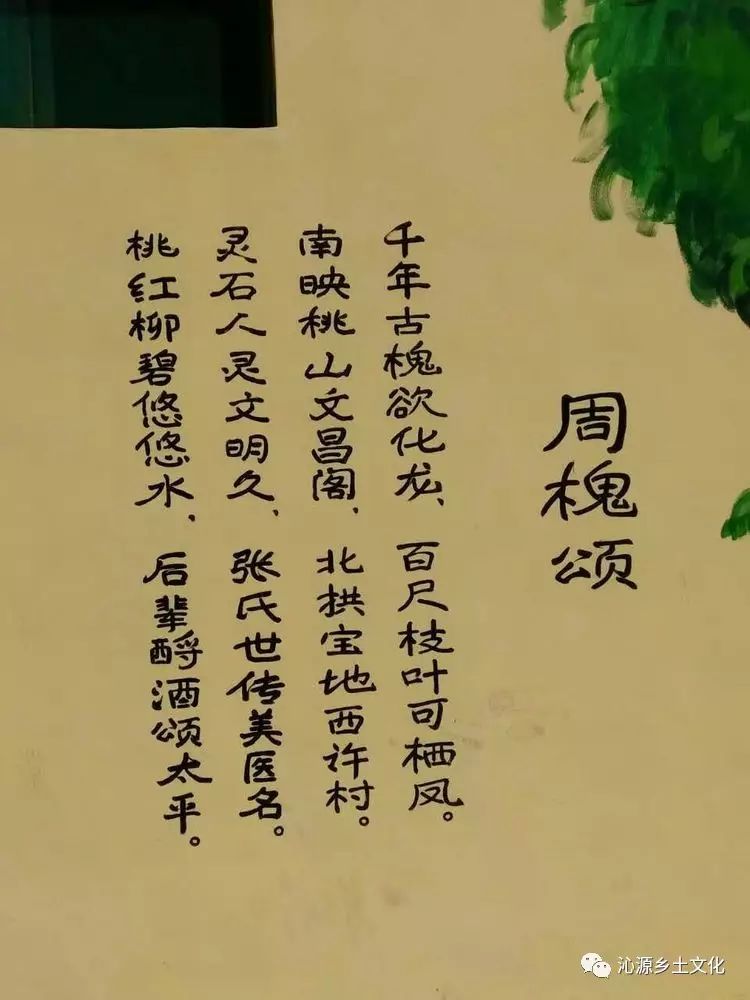 周槐颂
千年古槐欲化龙、百尺枝叶可栖凤。
南映桃山文昌阁、北拱宝地西许村。
灵石人灵文明久、张氏世传美医名。
桃红柳碧悠悠水、后辈酹酒颂太平。
沁源乡土文化